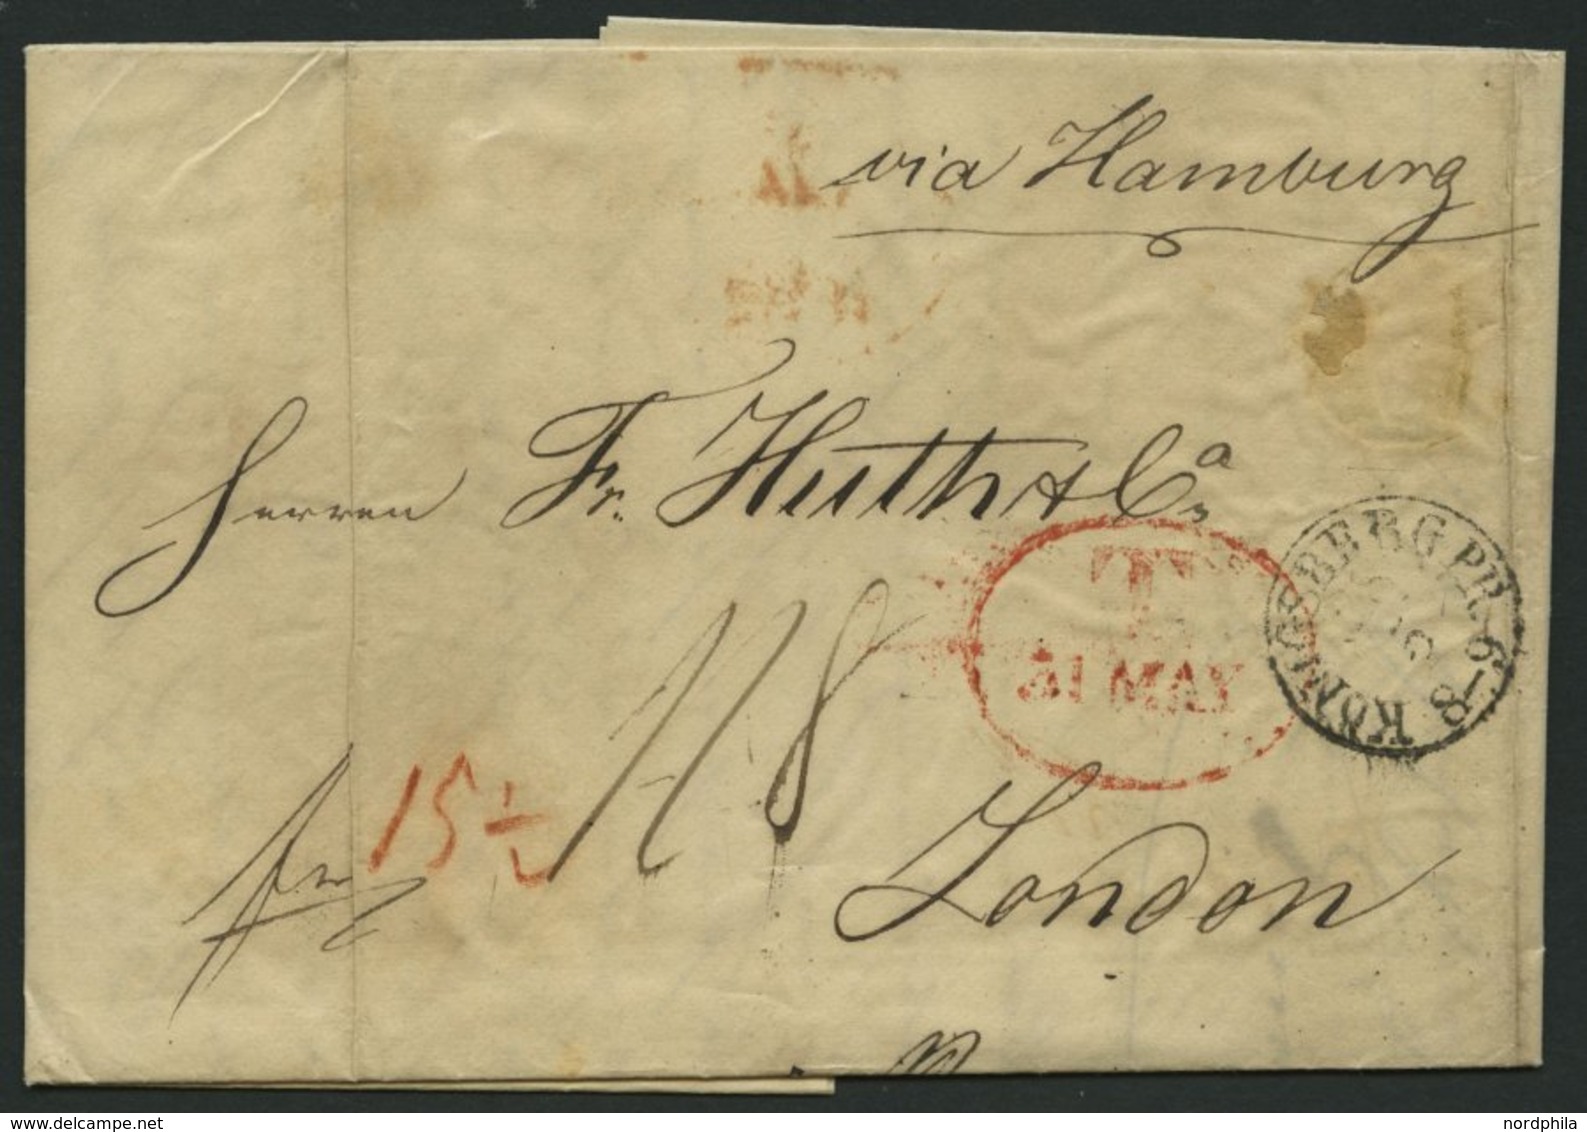 via Hamburg
Herren Fr. Huth & Co.
T
31 MAY
KÖNIGSBERG PR. 6-8
fr 15½
118
London
delcampe.net
nordphila